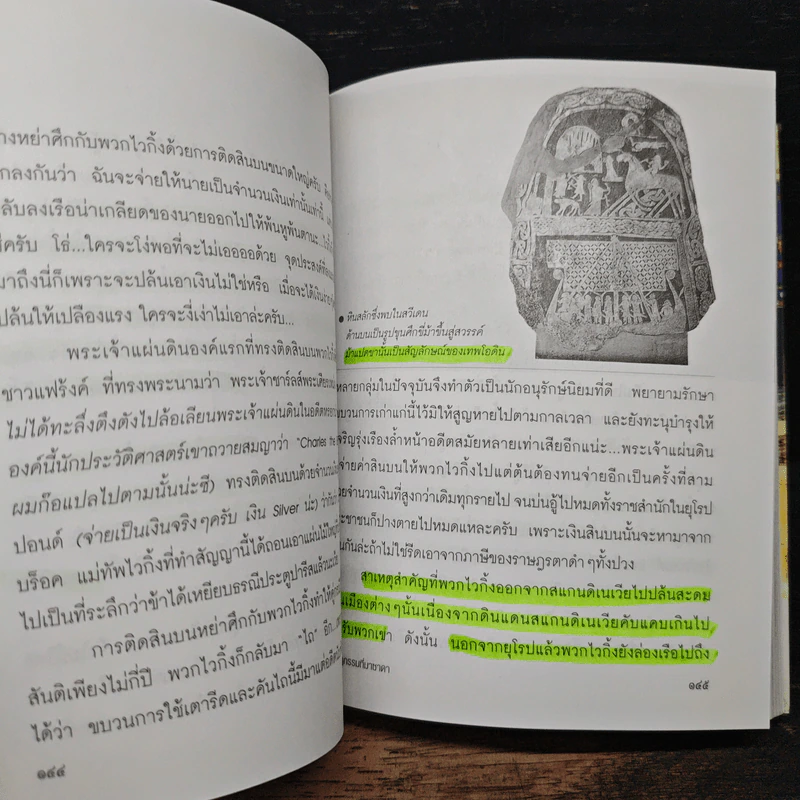 างหย่าศึกกับพวกไวกิ้งด้วยการติดสินบนขนาดใหญ่ครับ
กลงกันว่า ฉันจะจ่ายให้นายเป็นจำนวนเงินเท่านั้นเท่านี้
ลับลงเรือน่าเกลียดของนายออกไปให้พ้นหูพ้นตานะ...
ครับ โธ่...ใครจะโง่พอที่จะไม่เออออด้วย จุดประสงค์ที่
มาถึงนี่ก็เพราะจะปล้นเอาเงินไม่ใช่หรือ เมื่อจะได้เงิน
ปล้นให้เปลืองแรง ใครจะงี่เง่าไม่เอาล่ะครับ...
พระเจ้าแผ่นดินองค์แรกที่ทรงติดสินบนพวกไวกิ้ง
ชาวแฟร้งค์ ที่ทรงพระนามว่า พระเจ้าชาร์ลส์พระเศียร
ไม่ได้ทะลึ่งตึงตังไปล้อเลียนพระเจ้าแผ่นดินในอดีต
องค์นี้นักประวัติศาสตร์เขาถวายสมญาว่า "Charles the
ผมก๊อแปลไปตามนั้นน่ะซี) ทรงติดสินบนด้วยจำนวน
ปอนด์ (จ่ายเป็นเงินจริงๆครับ เงิน Silver น่ะ) ว่ากัน
บร็อค แม่ทัพไวกิ้งที่ทำสัญญานี้ได้ถอนเอาแผ่นไม้
ไปเป็นที่ระลึกว่าข้าได้เหยียบธรณีประตูปารีสแล้วนะ
การติดสินบนหย่าศึกกับพวกไวกิ้งทำให้
สันติเพียงไม่กี่ปี พวกไวกิ้งก็กลับมา "ไถ" อีก...
ได้ว่า ขบวนการใช้เตารีดและคันไถนี้มีมาแต่อดีต
๑๔๔
● หินสลักซึ่งพบในสวีเดน
ด้านบนเป็นรูปขุนศึกขี่ม้าขึ้นสู่สวรรค์
ม้าแปดขานั้นเป็นสัญลักษณ์ของเทพโอดิน
หลายกลุ่มในปัจจุบันจึงทำตัวเป็นนักอนุรักษ์นิยมที่ดี พยายามรักษา
บวนการเก่าแก่นี้ไว้มิให้สูญหายไปตามกาลเวลา และยังทะนุบำรุงให้
จริญรุ่งเรืองล้ำหน้าอดีตสมัยหลายเท่าเสียอีกแน่ะ...พระเจ้าแผ่นดิน
จ่ายค่าสินบนให้พวกไวกิ้งไปแต่ต้นต้องทนจ่ายอีกเป็นครั้งที่สาม
วยจำนวนเงินที่สูงกว่าเดิมทุกรายไป จนบ่นอู้ไปหมดทั้งราชสำนักในยุโรป
ะชาชนก็ปางตายไปหมดแหละครับ เพราะเงินสินบนนั้นจะหามาจาก
นกันล่ะถ้าไม่ใช่รีดเอาจากภาษีของราษฎรตาดำๆทั้งปวง
สาเหตุสำคัญที่พวกไวกิ้งออกจากสแกนดิเนเวียไปปล้นสะดม
เมืองต่างๆนั้นเนื่องจากดินแดนสแกนดิเนเวียคับแคบเกินไป
รับพวกเขา ดังนั้น นอกจากยุโรปแล้วพวกไวกิ้งยังล่องเรือไปถึง
กรรมที่มาชาดา
๑๔๕